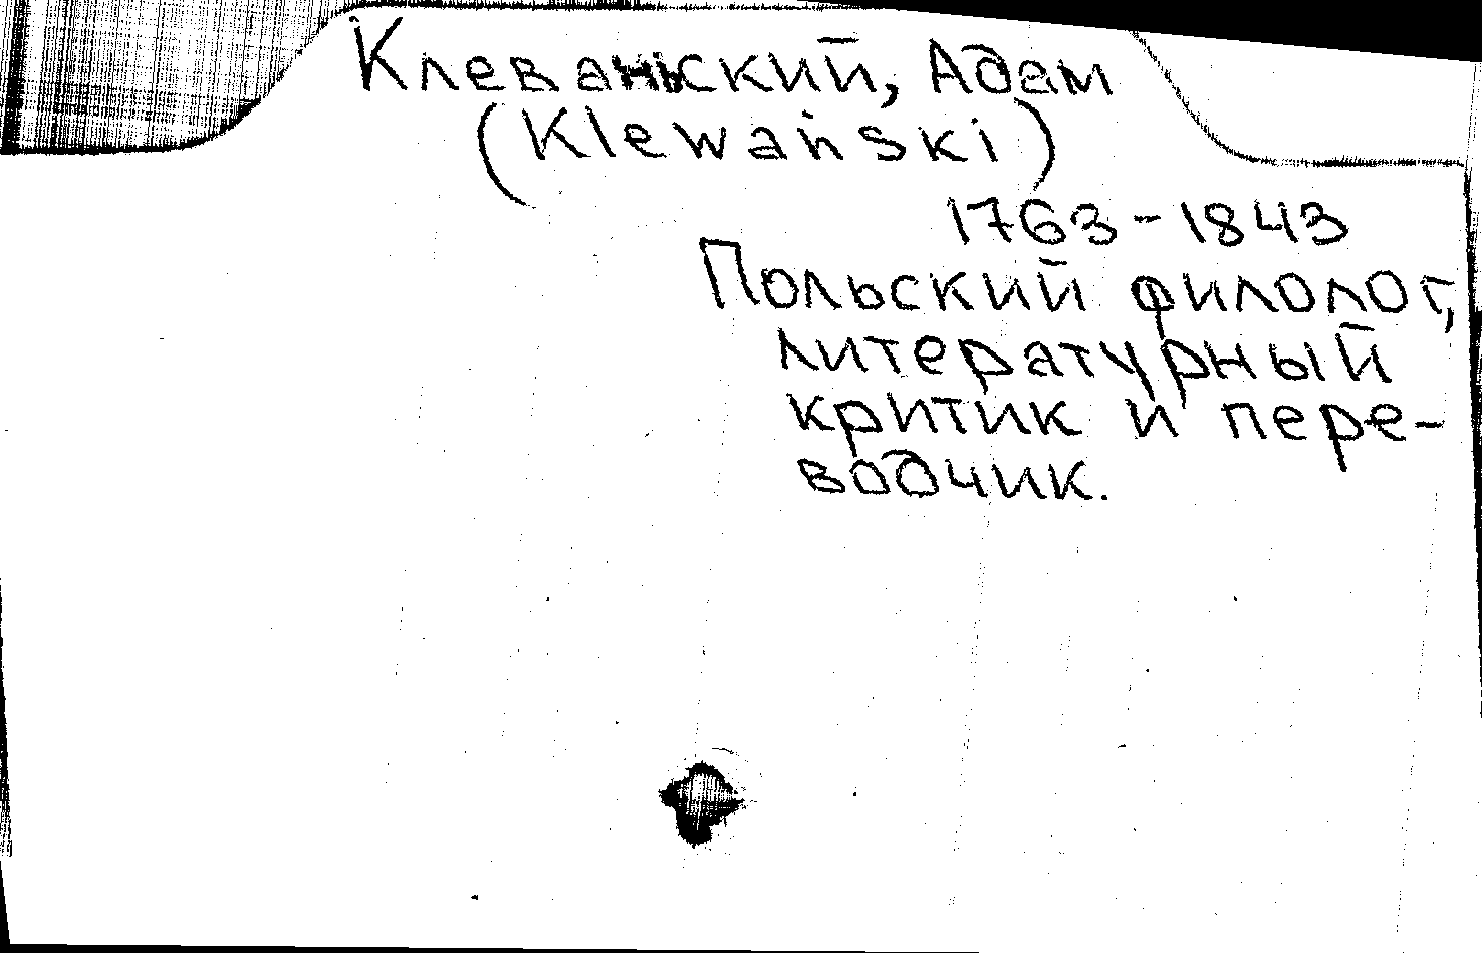 Клеваньский, Адам
(Klewański)
1763-1843
Польский филолог,
литературный
критик и пере-
водчик.